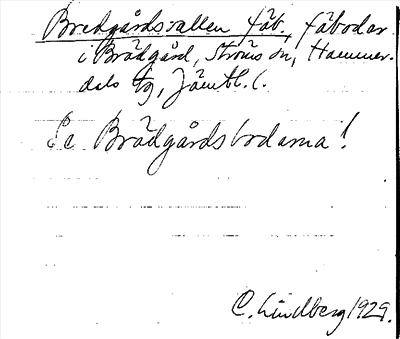 Bredgårdsvallen fäb., fäbodar
i Brädgård, Ströms sn, Hammer-
dals tg, Jämtl. l.
Se Brädgårdsbodarna!
C. Lindberg 1929.